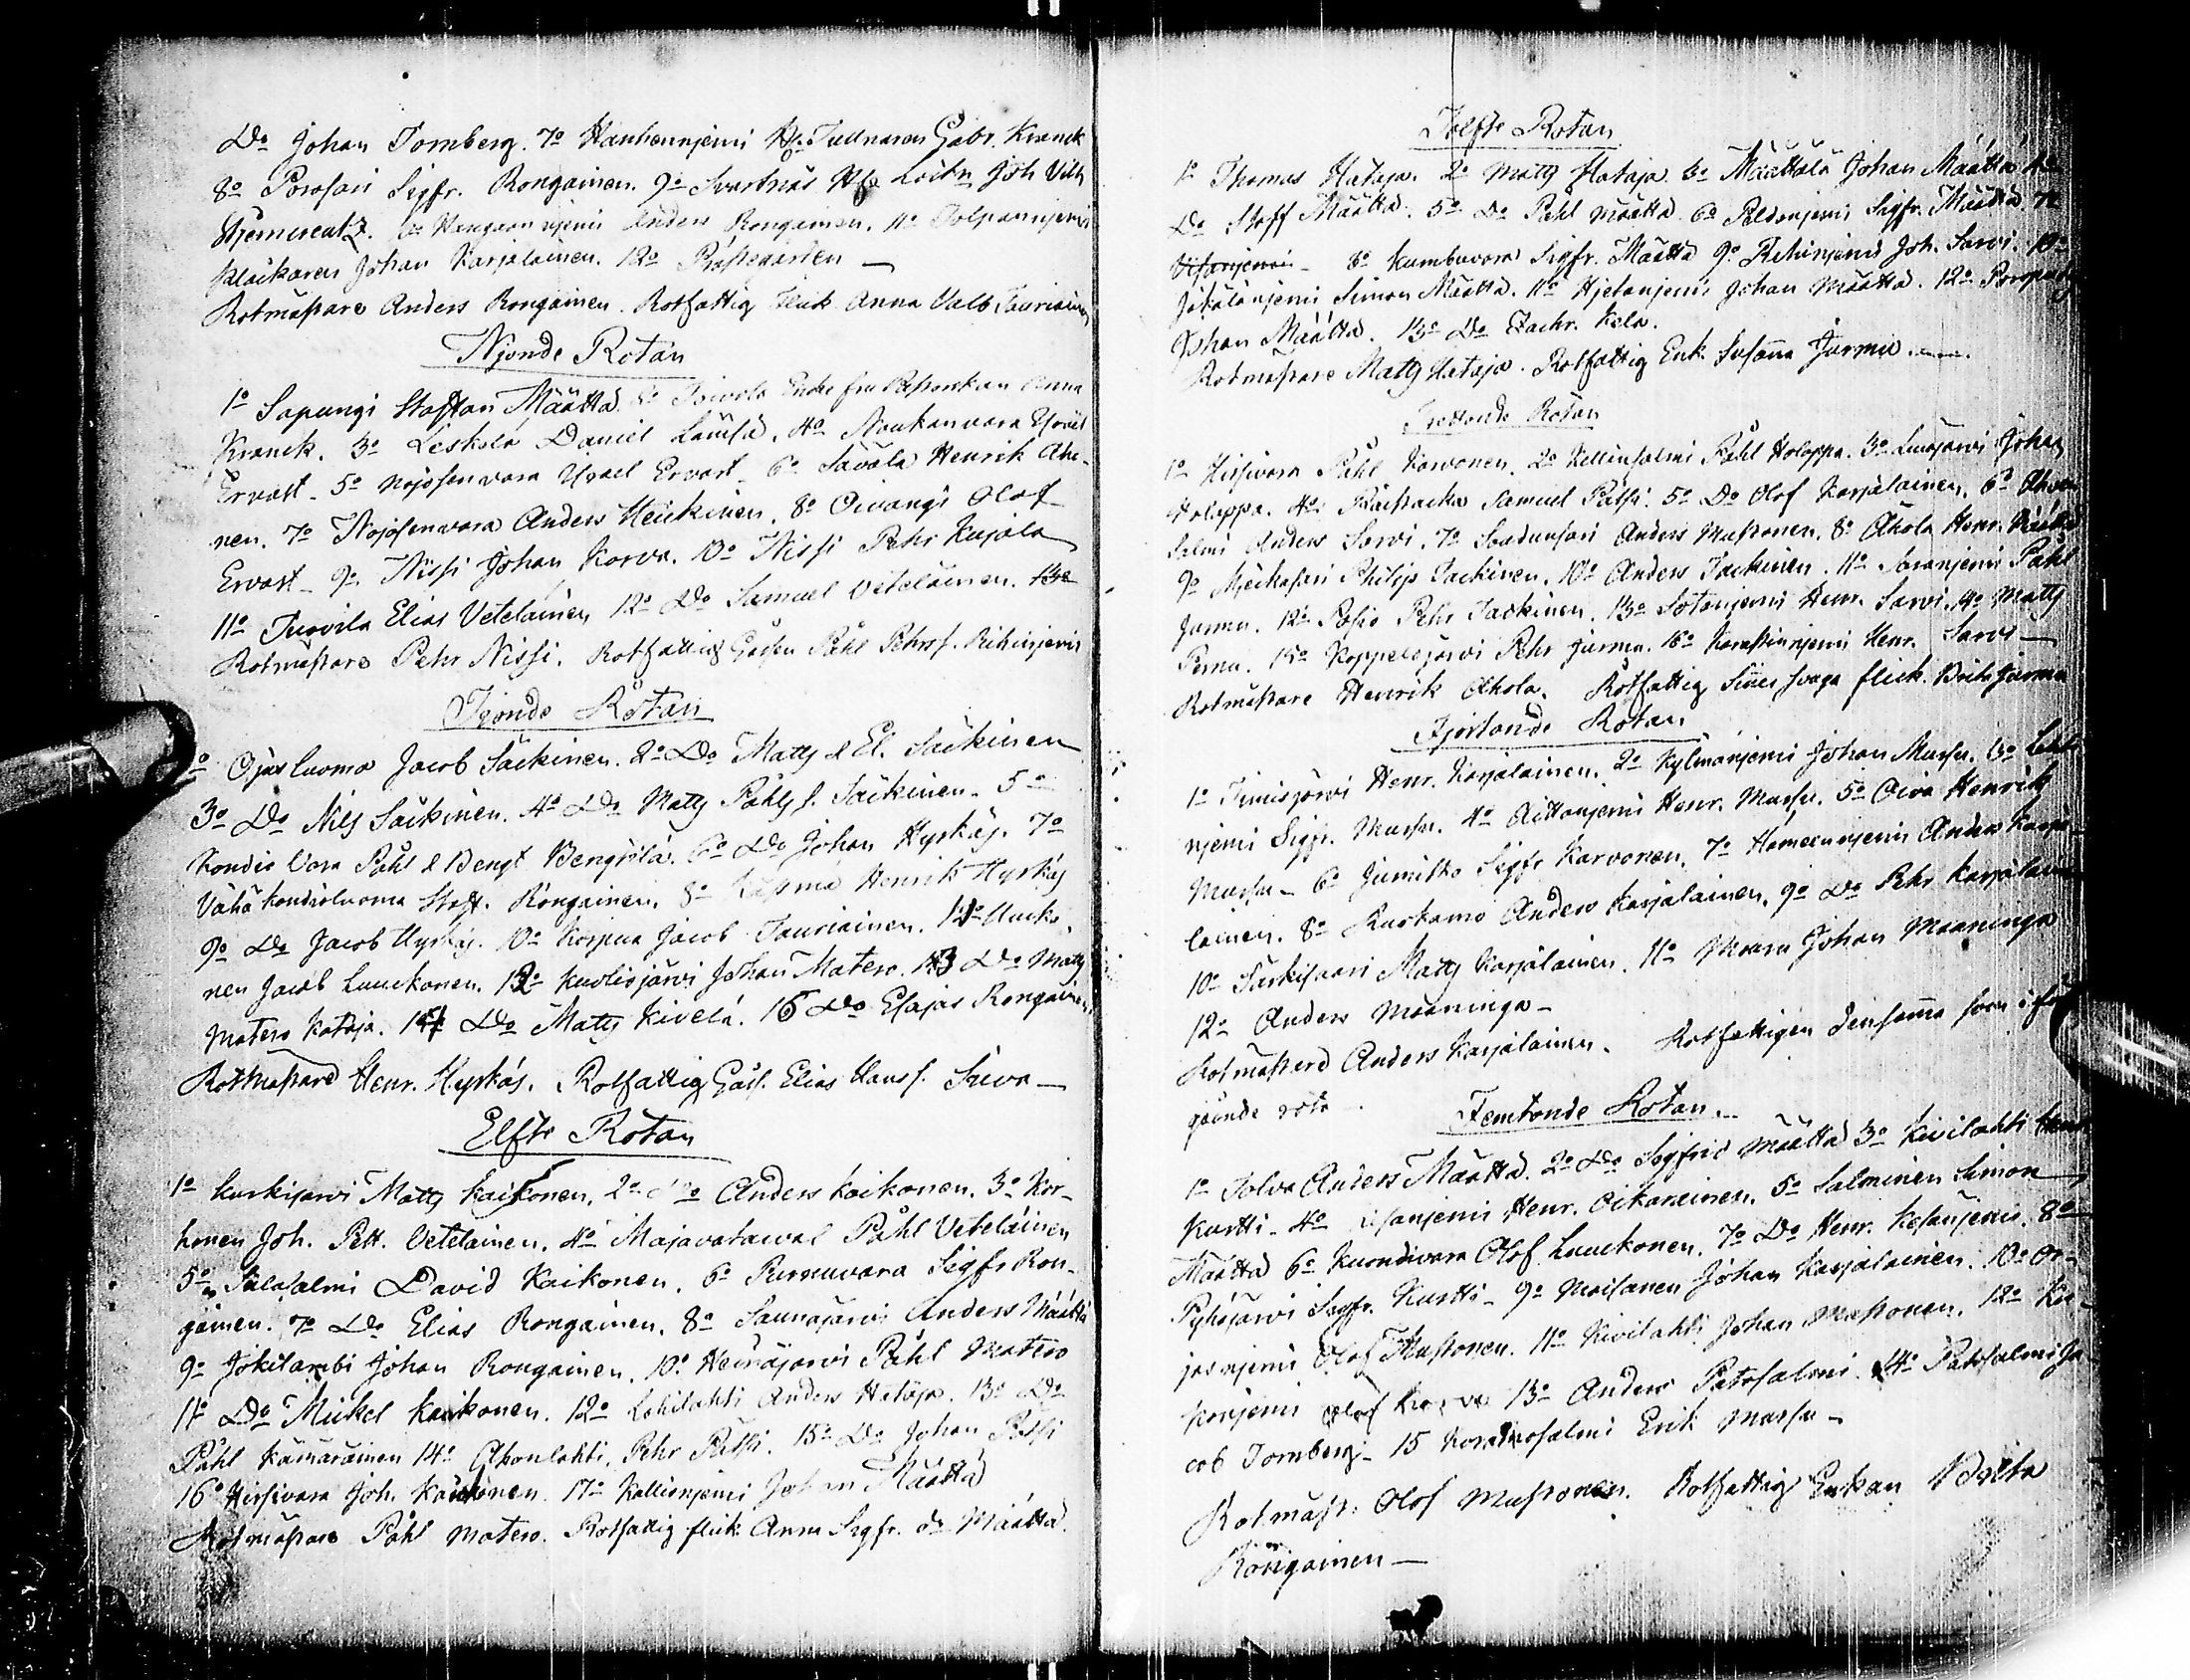 Do Johan Tornberg. 7o Hanhenniemi Hr Tullnaren Gabr. Kranck
8o Porosari Sigfr. Rongainen. 9o Svartnäs Hr Löitn Joh Vilh
Stjerncreutz. 10o Anders Rongainen. 11o Tolpanniemi
Klockaren Johan Karjalainen. 12o Prästegården —
Rotmästare Anders Rongainen. Rotfattig Enk. Anna Valb. Tauriainen
Njonde Rotan
1o Sapungi Staffan Määttä. 2o Toivola Enkefru Anna
Kranck. 3o Leskelä Daniel Lämsä. 4o Naukanvara Esrael
Ervast – 5o Nojosenvara Israel Ervast – 6o Saväla Henrik Aho-
nen. 7o Nojosenvara Anders Heickinen. 8o Oivangi Olof
Ervast – 9o Nissi Johan Korva. 10o Nissi Pehr Kujala
11o Turvila Elias Vetelainen 12o Do Samuel Vetelainen. 13o
Rotmästare Pehr Nissi. Rotfattig Gåssen Påhl Pehrss. Rihinjemi
Tjonde Rotan
1o Ojusluoma Jacob Säckinen. 2o Do Matts & El. Säckinen
3o Do Nils Säckinen. 4o Do Matts Påhls s. Säckinen – 5o
Kondio Vara Påhl & Bengt Bengtilä. 6o Do Johan Hyrkäs. 7o
Vähä kondioluoma Staff. Rongainen. 8o Käsmä Henrik Hyrkäs
9o Do Jacob Hyrkäs. 10o Korpua Jacob Tauriainen. 11o Lucko-
nen Jacob Luuckonen. 12o Kuolisjärvi Johan Matero. 13 Do Matts
Matero Kataja. 14 Do Matts Kivelä. 16 Do Esajas Rongainen
Rotmästare Henr. Hyrkäs. Rotfattig Gåss. Elias Hanss. Sirva —
Elfte Rotan
1o Kurkijarvi Matts Kaikonen. 2o Do Anders Kaikonen. 3o Kor-
honen Joh. Pett. Vetelainen. 4o Majavataival Påhl Vetelainen
5o Salasalmi David Kaikonen. 6o Purnuvara Sigfr Ron-
gainen. 7o Do Elias Rongainen. 8o Saunajarvi Anders Määttä
9o Jokilambi Johan Rongainen. 10o Heinäjarvi Påhl Matero
11o Do Mickel Kaikonen. 12o Lohilahti Anders Hataja. 13o Do
Påhl Kämäräinen 14o Ahonlahti. Pehr Pätsi. 15o Do Johan Pätsi
16o Hirsivara Joh. Kaikonen. 17o Kallionjemi Johan Määttä
Rotmästare Påhl Matero. Rotfattig flick. Anna Sigfr. dr Määttä.
Tolfte Rotan
1o Thomas Hataja. 2o Matts Hataja. 3o Määttälä Johan Määttä 4o
Do Staff Määttä. 5o Do Påhl Määttä. 6o Peldonjemi Sigfr. Määttä. 7o
8o Kumbuvara Sigfr. Määttä 9o Rihinjemi Joh. Sarvi. 10o
Jokälänjemi Simon Määttä. 11o Hjetanjemi Johan Määttä. 12o
Johan Määttä. 13o Do Zachr. Kela.
Rotmästare Matts Hataja. Rotfattig Enk. Susanna Jurmu.
Trettonde Rotan
1o Hirsivara Påhl Karvonen. 2o Kellinsalmi Påhl Holappa. 3o Johan
Holappa. 4o Samuel Pätsi. 5o Do Olof Karjalainen. 6o
Salmi Anders Sarvi. 7o Anders Mustonen. 8o Ahola Henr.
9o Philip Tackinen. 10o Anders Tackinen. 11o Påhl
Jurmu. 12o Posio Pehr Tackinen. 13o Sotanjemi Henr. Sarvi. 14o Matts
Pernu. 15o Koppelojärvi Pehr Jurmu. 16o Henr. Sarvi —
Rotmästare Henrik Ahola. Rotfattig Sinnessvaga flick. Brita Jurmu
Fjortonde Rotan
1o Timisjärvi Henr. Karjalainen. 2o Kylmänjemi Johan Mursu. 3o
njemi Sigfr. Mursu. 4o Aittanjemi Henr. Mursu. 5o Oiva Henrik
Mursu – 6o Jumisko Sigfr Karvonen. 7o Hameennjemi Anders Karja-
lainen. 8o Ruokamo Anders Karjalainen. 9o Do Pehr Karjalainen
10o Särkisaari Matts Karjalainen. 11o Johan Maaninga
12o Anders Maaninga –
Rotmästare Anders Karjalainen. Rotfattigen densamma som i före
gående rota –
Femtonde Rotan. –
1o Tolva Anders Määttä. 2o Do Sigfrid Määttä 3o Kivilahti
Kurtti – 4o Henr. Oikarainen. 5o Salminen Simon
Määttä 6o Kuondivara Olof Luuckonen. 7o Do Henr. Kesänjemi. 8o
Pyhäjärvi Sigfr. Kurtti – 9o Moilanen Johan Karjalainen. 10o Or-
jasnjemi Olof Mustonen. 11o Kivilahti Johan Mustonen. 12o
Olof Korva 13o Anders Patosalmi. 14o Patosalmi Ja-
cob Tornberg – 15 Erik Mursu –
Rotmäst. Olof Mustonen. Rotfattig Enkan Brita
Rongainen —